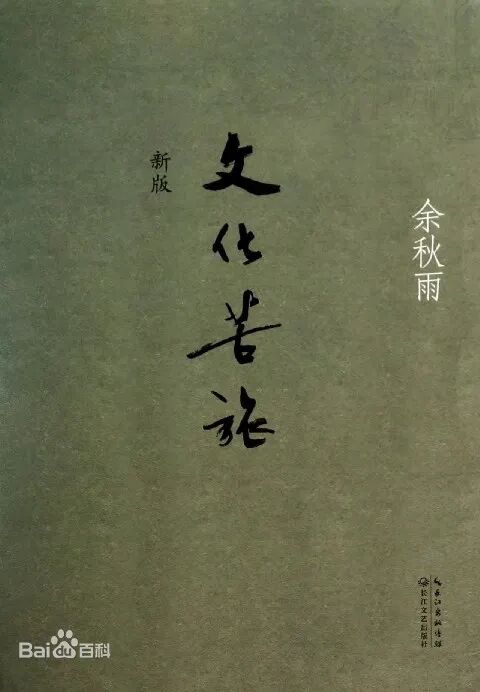 新版
文化苦旅
余秋雨
长江出版传媒
长江文艺出版社
Baidu百科